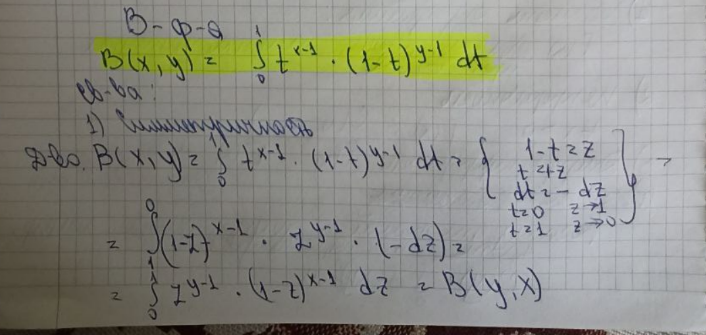 В-ф-а
B(x,y) = ∫₀¹ t^{x-1} · (1-t)^{y-1} dt
Св-ва:
1) Симметричность
Док-во. B(x,y) = ∫₀¹ t^{x-1} · (1-t)^{y-1} dt = { 1-t=z
t=1-z
dt = -dz
t=0 z→1
t=1 z→0 } =
= ∫₁⁰ (1-z)^{x-1} · z^{y-1} · (-dz) =
= ∫₀¹ z^{y-1} · (1-z)^{x-1} dz = B(y,x)